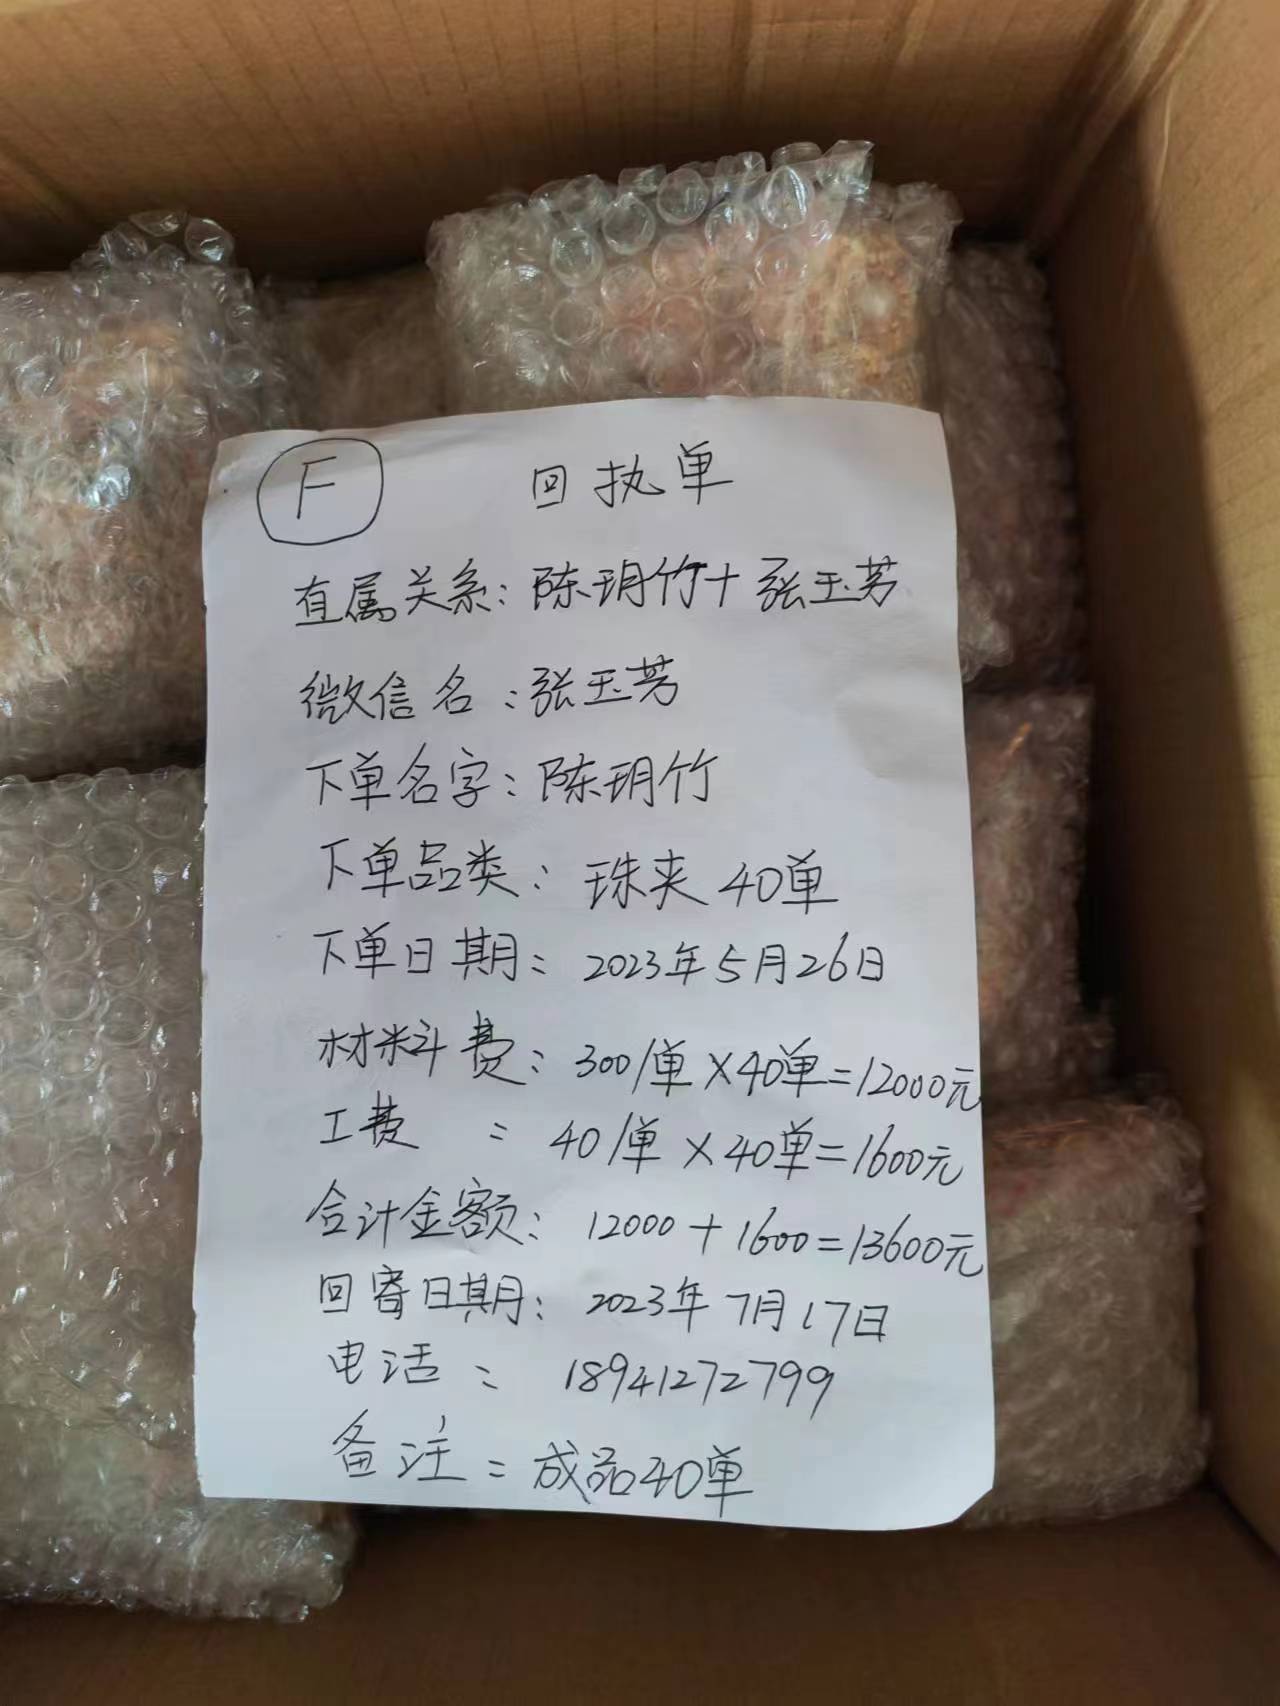 F 回执单
直属关系：陈玥竹+张玉芳
微信名：张玉芳
下单名字：陈玥竹
下单品类：珠夹 40单
下单日期：2023年5月26日
材料费：300/单×40单=12000元
工费：40/单×40单=1600元
合计金额：12000+1600=13600元
回寄日期：2023年7月17日
电话：18941272799
备注：成品40单